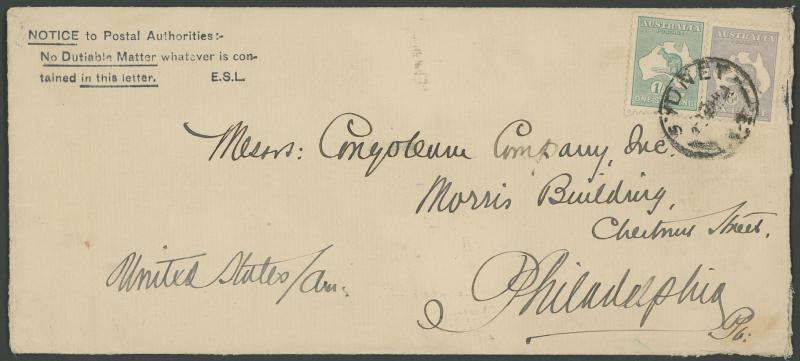 NOTICE to Postal Authorities:-
No Dutiable Matter whatever is con-
tained in this letter. E.S.L.
AUSTRALIA
POSTAGE
1/-
ONE SHILLING
AUSTRALIA
SYDNEY
Messrs: Congoleum Company, Inc.
Morris Building,
Chestnut Street,
Philadelphia
Pa:
United States/Am.